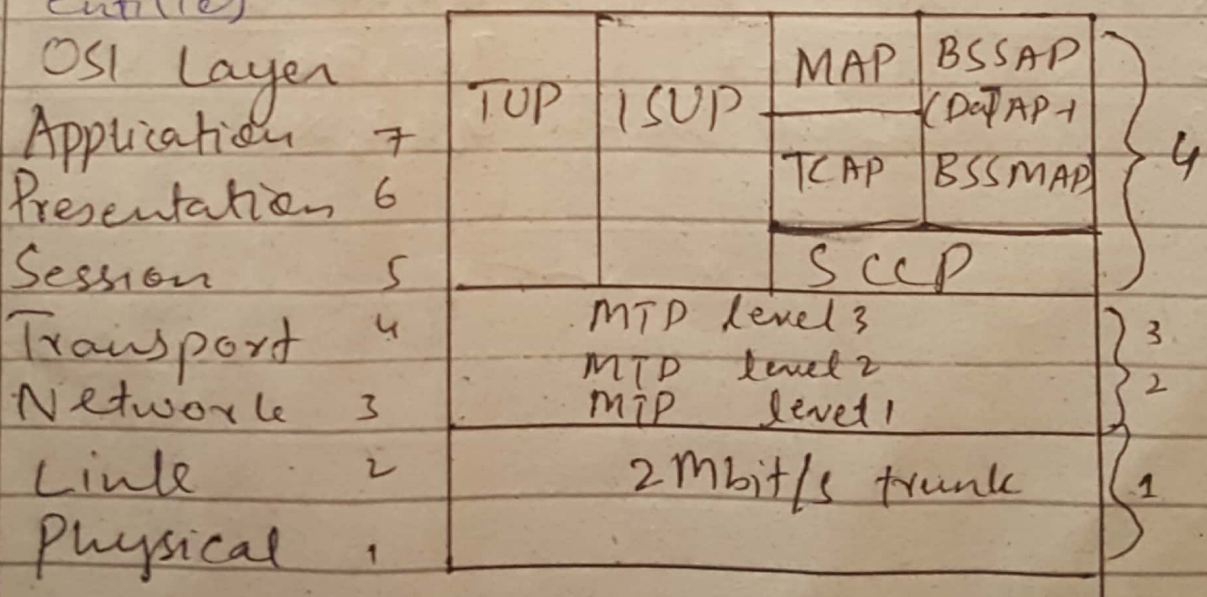 entities
OSI Layer
Application 7
Presentation 6
Session 5
Transport 4
Network 3
Link 2
Physical 1
TUP
ISUP
MAP
TCAP
BSSAP
(DaTAP+
BSSMAP
SCCP
MTP level 3
MTP level 2
MTP level 1
2Mbit/s trunk
4
3
2
1